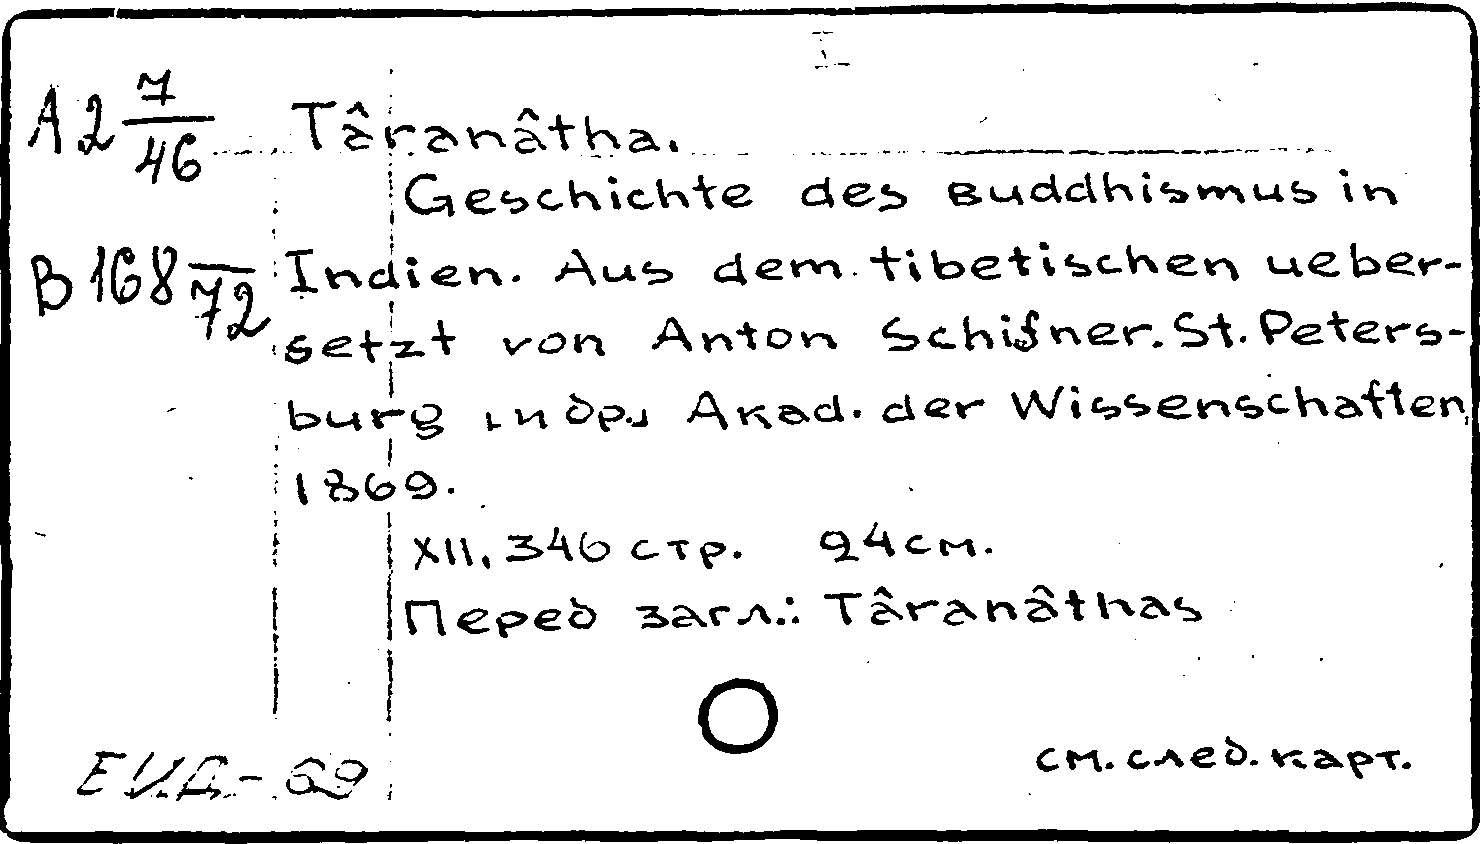 I
A2 7/46 Târanâtha.
Geschichte des Buddhismus in
B 168/72 Indien. Aus dem tibetischen ueber-
setzt von Anton Schifner. St. Peters-
burg и др., Akad. der Wissenschaften,
1869.
XII, 346 стр. 24 см.
Перед загл.: Târanâthas
см. след. карт.